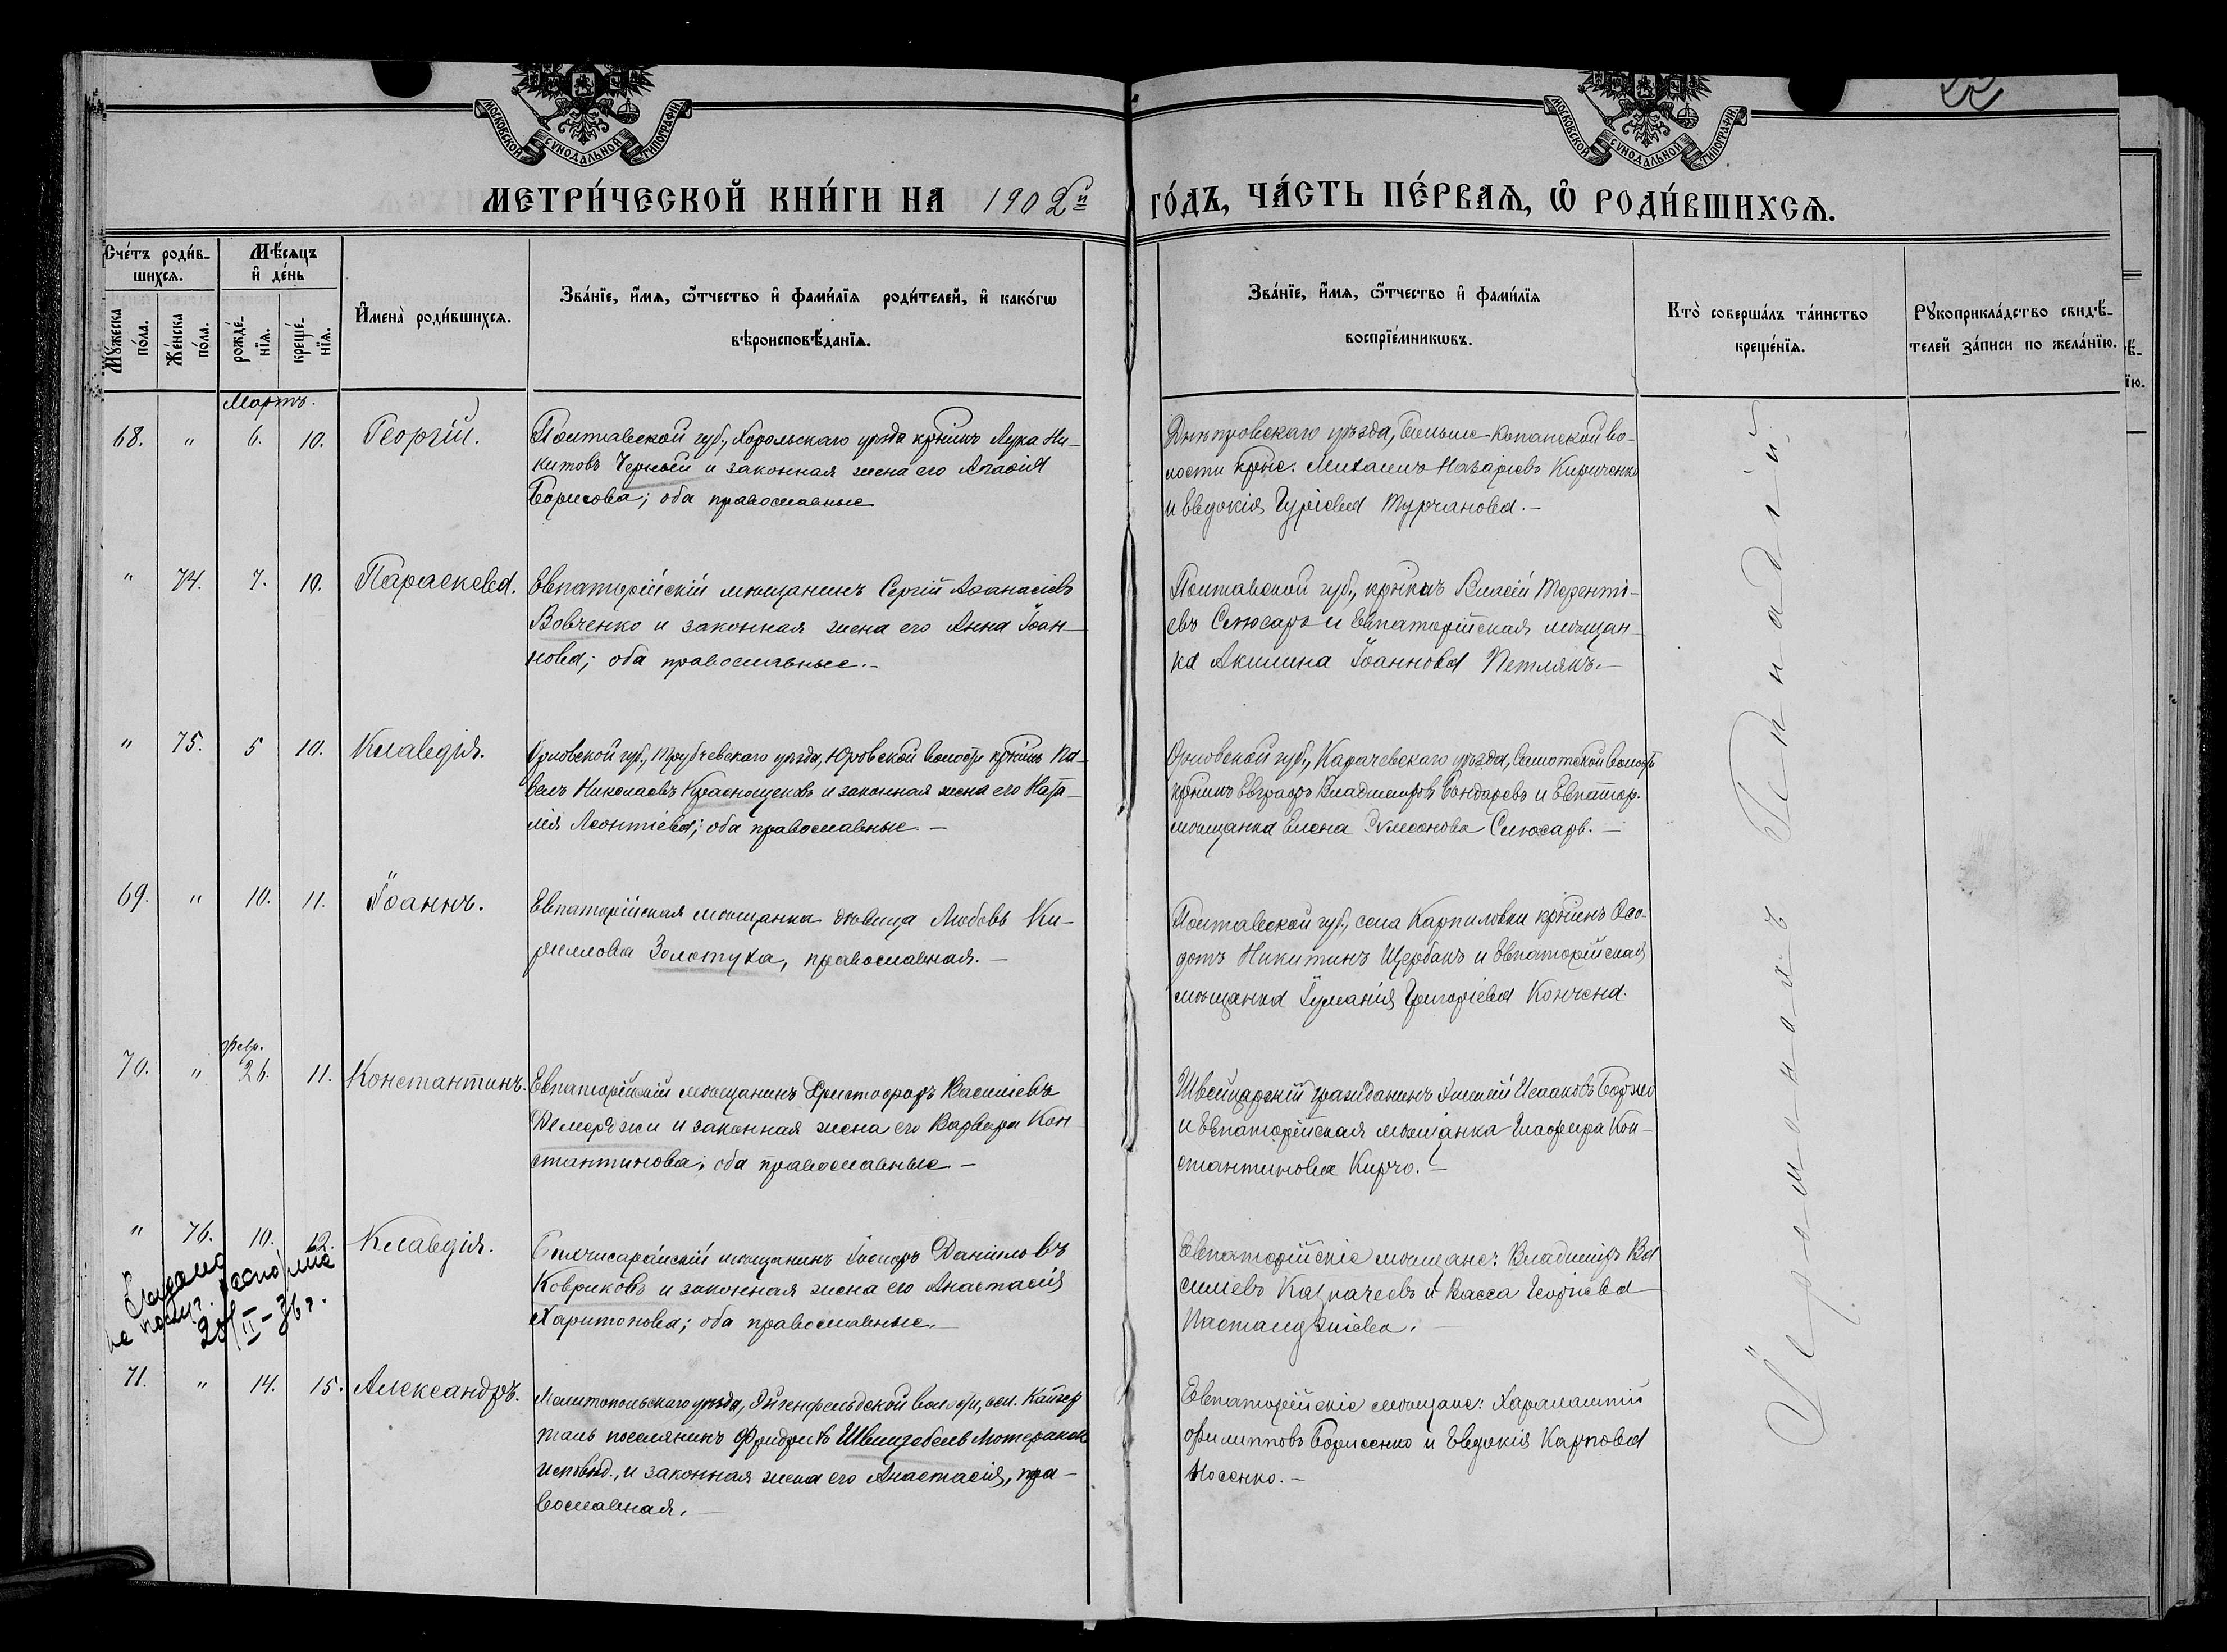 МОСКОВСКОЙ СѴНОДАЛЬНОЙ ТИПОГРАФІИ
МОСКОВСКОЙ СѴНОДАЛЬНОЙ ТИПОГРАФІИ
22
МЕТРИ́ЧЕСКОЙ КНИ́ГИ НА 1902й ГО́ДЪ, ЧА́СТЬ ПЕ́РВАѦ, Ѡ РОДИ́ВШИХСѦ.
Сче́тъ роди́в-
шихсѧ.
Мꙋ́жеска по́ла.
Же́нска по́ла.
Мѣ́сѧцъ
и҆ де́нь
рожде́-
нїѧ.
креще́-
нїѧ.
И҆мена̀ роди́вшихсѧ.
Зва́нїе, и҆́мѧ, ѻ҆́тчество и҆ фами́лїѧ роди́телей, и҆ како́гѡ
вѣроисповѣ́данїѧ.
Зва́нїе, и҆́мѧ, ѻ҆́тчество и҆ фами́лїѧ
воспрїе́мникѡвъ.
Кто̀ соверша́лъ та́инство
креще́нїѧ.
Рꙋкоприкла́дство свидѣ́-
телей за́писи по жела́нїю.
Мартъ.
68. " 6. 10. Георгій.
Полтавской губ., Хорольскаго уѣзда кр̃нинъ Лука Ни-
китовъ Черный и законная жена его Агафія
Борисова; оба православные
Днѣпровскаго уѣзда, Больше-Копанской во-
лости крне. Михаилъ Назаріевъ Кириченко
и Евдокія Гуріева Турчанова.-
" 74. 7. 10. Параскева.
Евпаторійскій мѣщанинъ Сергій Аѳанасіевъ
Вовченко и законная жена его Анна Іоан-
нова; оба православные.-
Полтавской губ., кр̃нинъ Власій Терентi-
евъ Слюсарь и Евпаторійская мѣщан-
ка Акилина Іоаннова Петлякъ.-
" 75. 5 10. Клавдія.
Орловской губ., Трубчевскаго уѣзда, Юровской волости кр̃нинъ Па-
велъ Николаевъ Краснощековъ и законная жена его Ната-
лія Леонтіева; оба православные.-
Орловской губ., Карачевскаго уѣзда, волости
кр̃нинъ Евграфъ Владиміровъ Бондаревъ и Евпатор.
мѣщанка Елена Сѵмеонова Слюсарь.-
69. " 10. 11. Іоаннъ.
Евпаторійская мѣщанка дѣвица Любовь Ки-
риллова Золотуха, православная.-
Полтавской губ., села Карпиловки кр̃нинъ Ѳео-
дотъ Никитинъ Щербакъ и Евпаторійская
мѣщанка Іуліанія Григоріева Кончена.
Февр.
70. " 26. 11. Константинъ.
Евпаторійскій мѣщанинъ Христофоръ Василіевъ
Демерджи и законная жена его Варвара Кон-
стантинова; оба православные-
Швейцарскій гражданинъ Исааковъ
и Евпаторійская мѣщанка Глафира Кон-
стантинова Кирчо.-
" 76. 10. 12. Клавдія.
Бахчисарайскій мѣщанинъ Іосифъ Даніиловъ
Ковриковъ и законная жена его Анастасія
Харитонова; оба православные.-
Евпаторійскіе мѣщане: Владиміръ Ва-
силіевъ Казначеевъ и Васса Георгіева
Выдано
на
20/II-36г.
71. " 14. 15. Александръ.
Мелитопольскаго уѣзда, Эйгенфельдской волости, кол. Кайзер-
таль поселянинъ Фридрихъ Швинцебель Лютеранск.
исповѣд., и законная жена его Анастасія, пра-
вославная.-
Евпаторійскіе мѣщане: Харалампій
Филипповъ Борисенко и Евдокія Карпова
Носенко.-
Іеромонахъ Геннадій